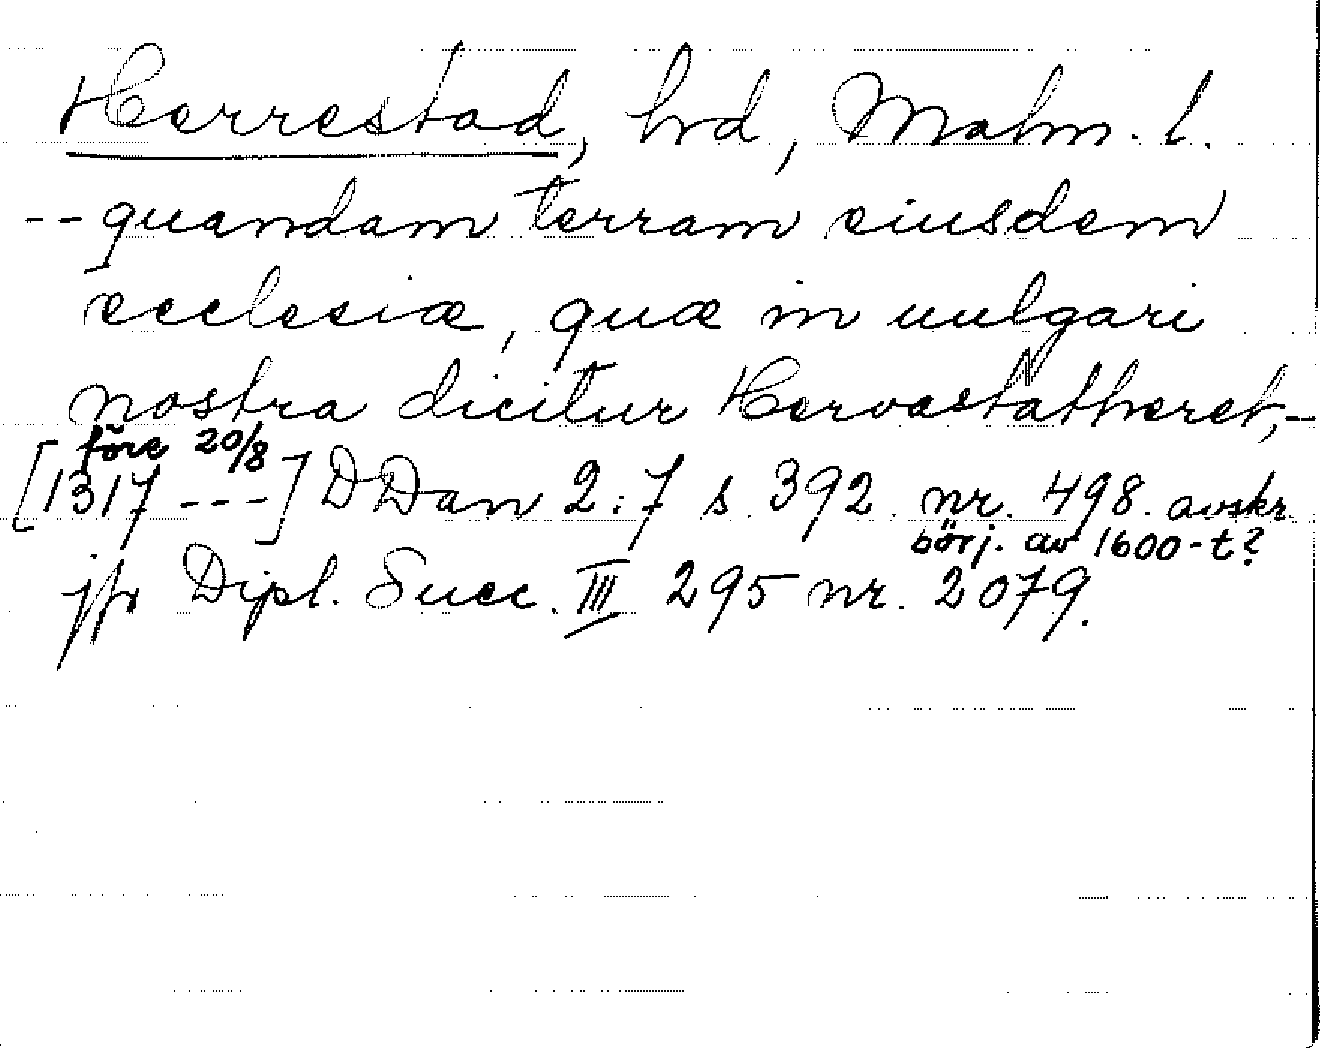 Herrestad, hrd, Malm. l.
-- quandam terram eiusdem
ecclesiæ, quæ in uulgari
nostra dicitur Hervastatheret,-
före 20/8
[1317 ---] DDan 2:7 s. 392 nr. 498. avskr.
börj. av 1600-t?
jfr Dipl. Suec. III 295 nr. 2079.